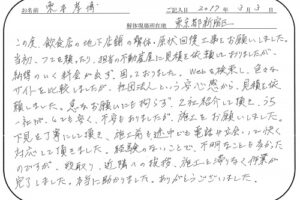 お名前 栗本孝博 ご記入日 2017年3月3日
解体現場所在地 東京都新宿区
この度、飲食店の地下店舗の解体・原状回復工事をお願いしました。
当初、フロを頼り、担当の不動産屋に見積を依頼しておりましたが、
納得のいく料金が出ず、困っておりました。Webを検索し、色々な
サイトを比較しましたが、社団法人という安心感から、見積を依
頼しました。急なお願いにも拘らず2社紹介して頂き、うち
一社が、とても安く、不安もありましたが、施工をお願いしました。
下見を丁寧にして頂き、施工前も途中でも電話や立会いで快く
対応して頂きました。経験のないことで、不明なことも多かった
のですが、段取り、近隣への挨拶、施工と滞りなく作業が
完了しました。本当に助かりました。ありがとうございました。